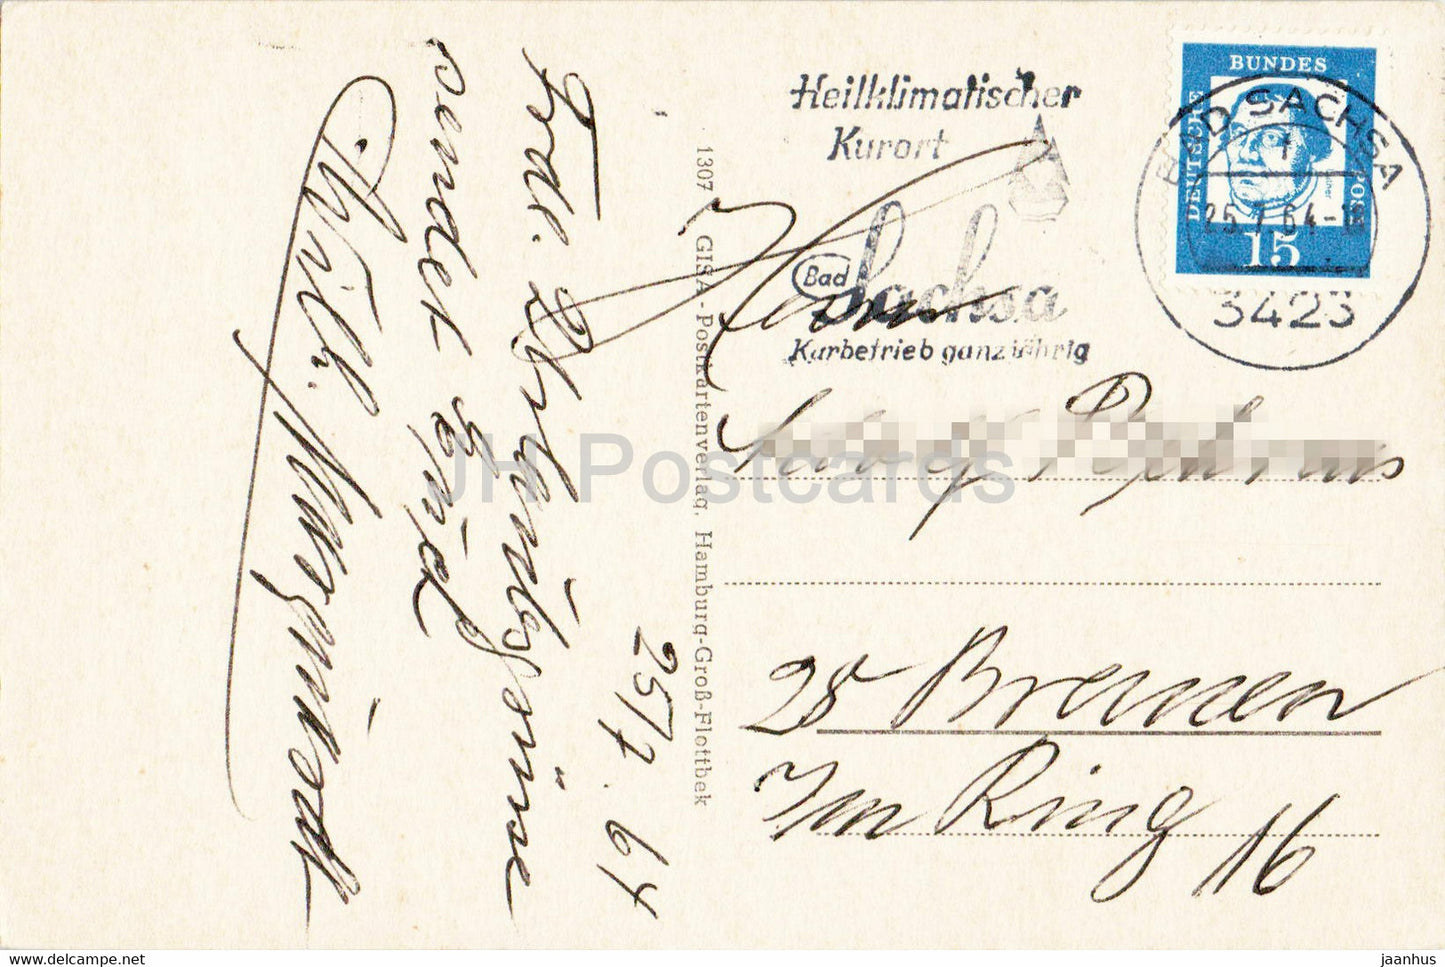 Frdl. Urlaubsgrüsse
sendet Emil
Wilh.
25/7. 64
1307 GISA-Postkartenverlag, Hamburg-Groß-Flottbek
Heilklimatischer
Kurort
Bad Sachsa
Kurbetrieb ganzjährig
DEUTSCHE
BUNDES
POST
15
BAD SACHSA
1
25.7.64-18
3423
Herrn
28 Bremen
Im Ring 16
JH Postcards
jaanhus - hipfen.net